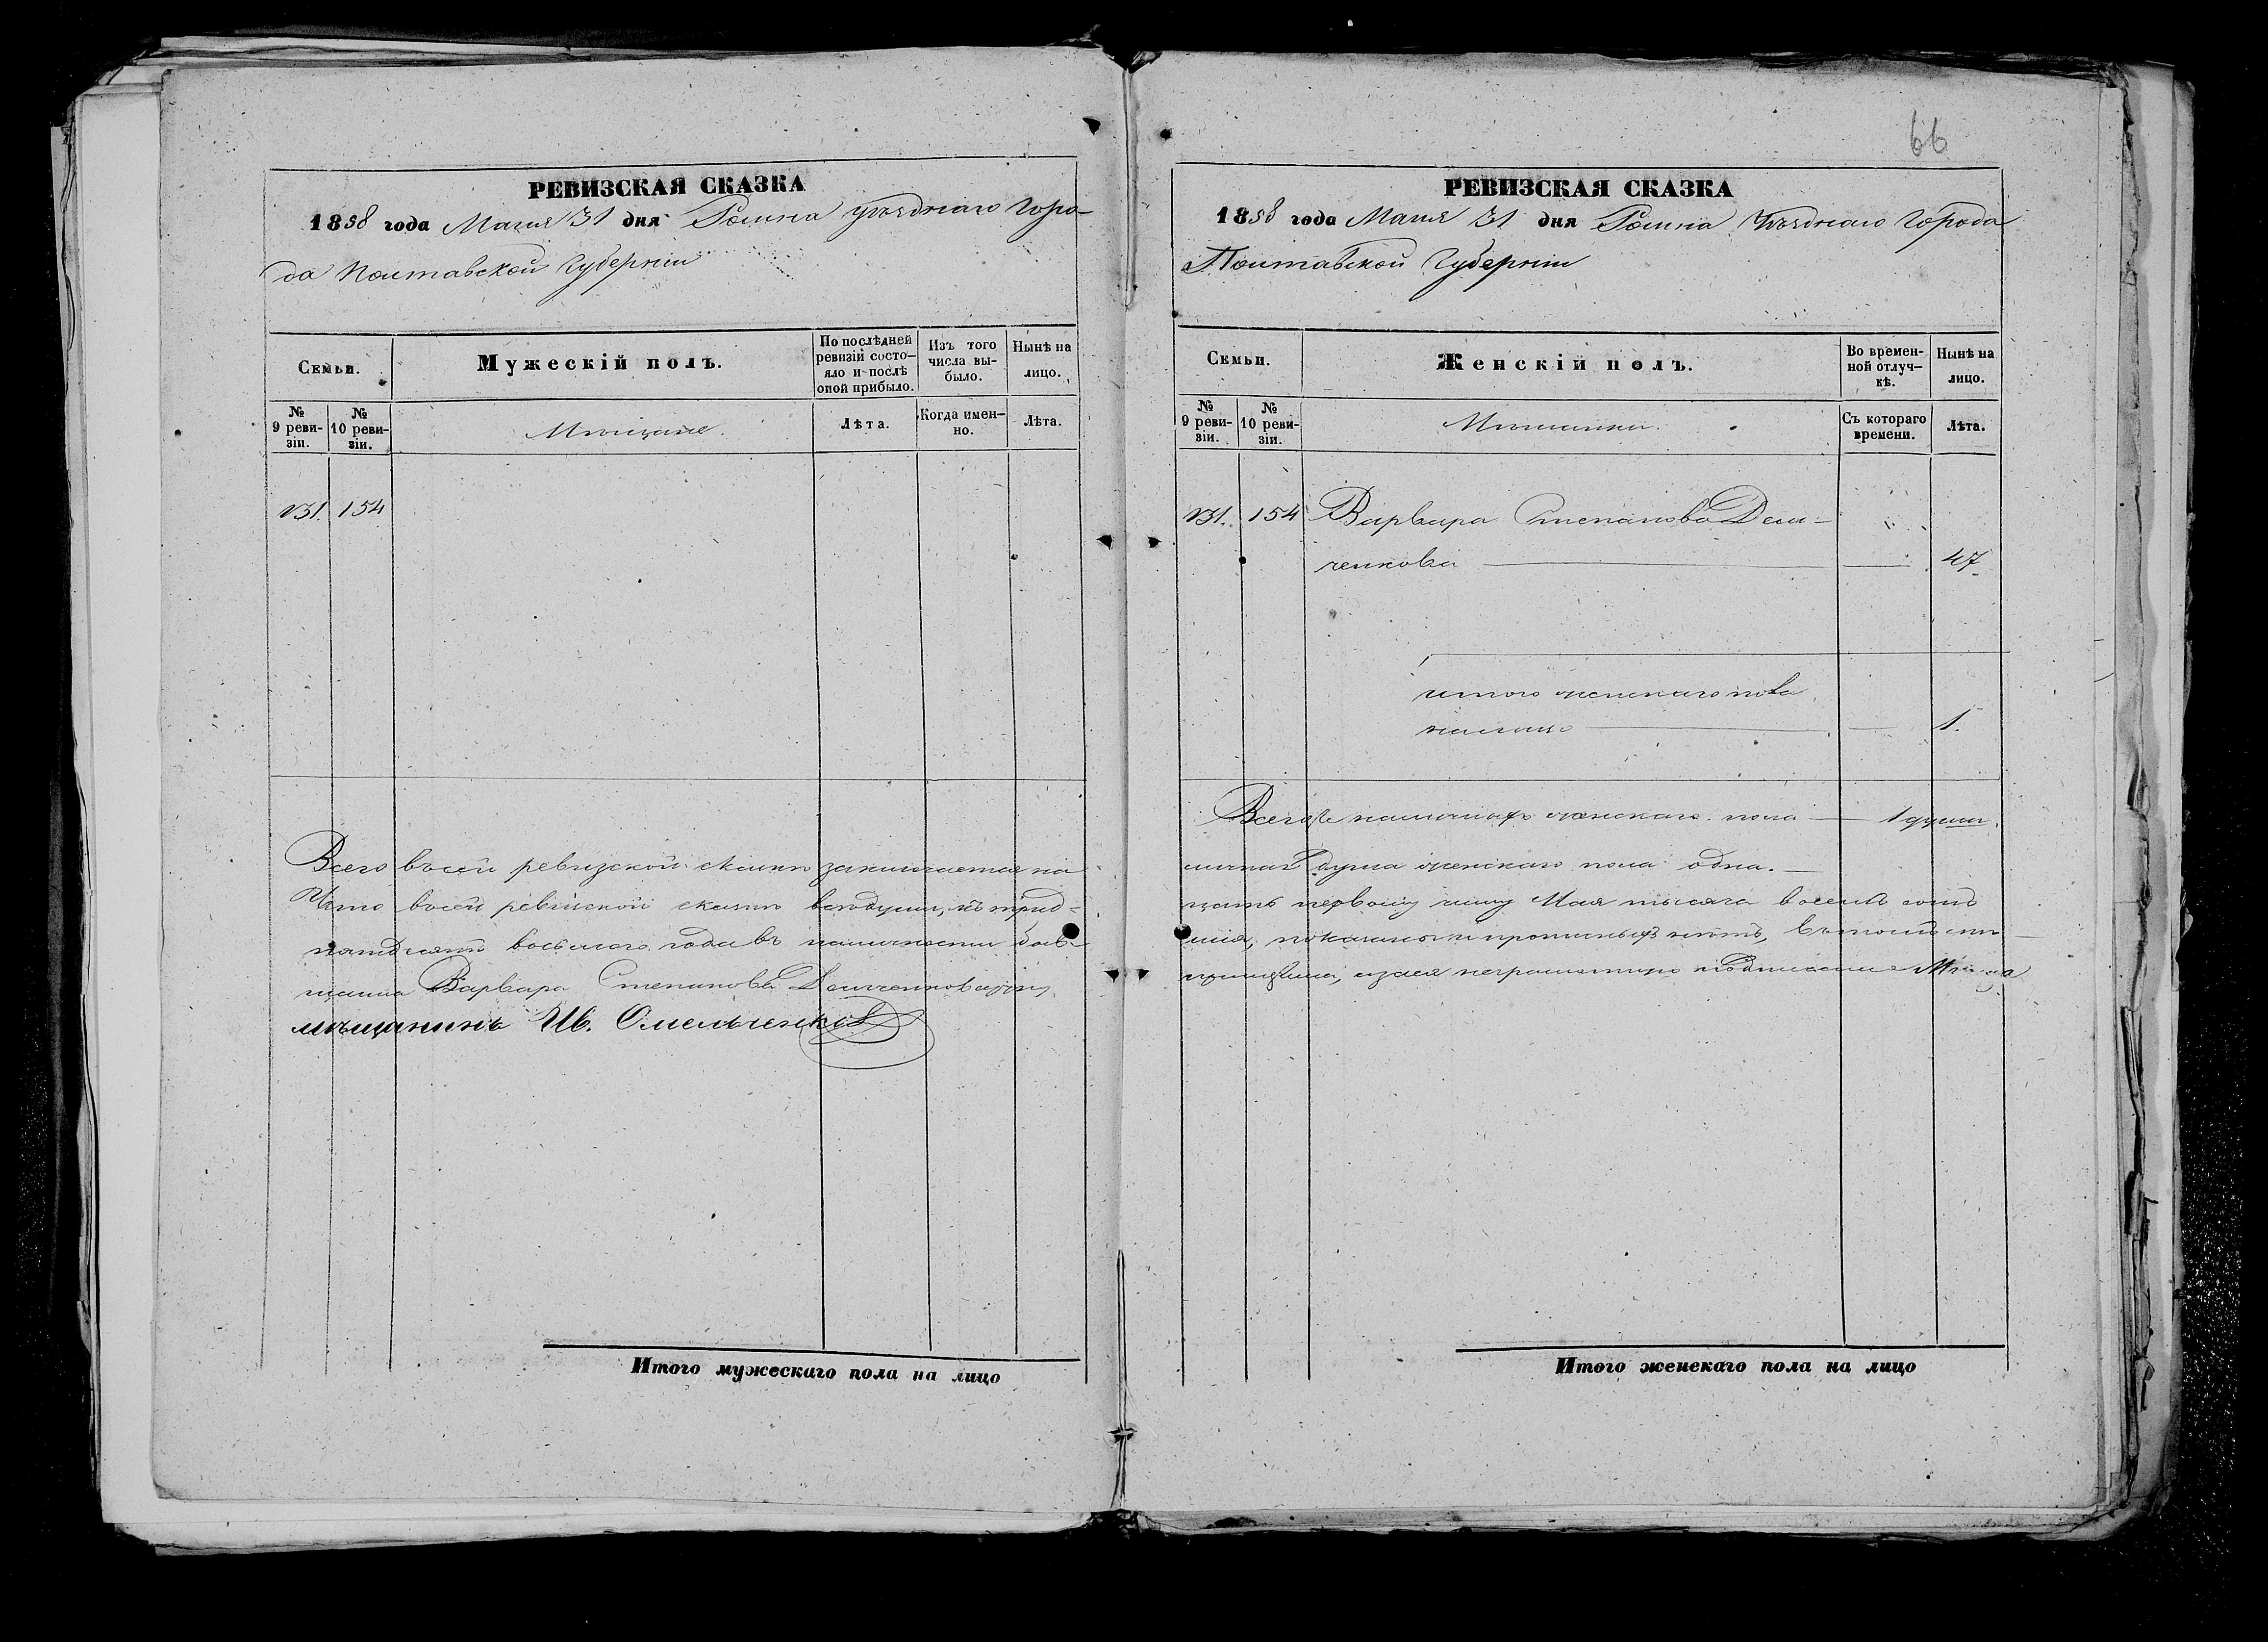 РЕВИЗСКАЯ СКАЗКА
1858 года Маия 31 дня Ромна уѣзднаго горо-
да Полтавской Губерніи
Семьи.
Мужескій полъ.
По послѣдней ревизіи состо-яло и послѣ оной прибыло.
Изъ того числа вы-было.
Нынѣ на лицо.
№ 9 реви-зіи.
№ 10 реви-зіи.
Мѣщане.
Лѣта.
Когда имен-но.
Лѣта.
131. 154
Всего въ сей ревизской сказкѣ заключается на
Что въ сей ревизской сказкѣ всѣ души, къ трид-
пятдесятъ восьмаго года въ наличности
Варвара Степанова
мѣщанинъ Ив. Омельченко
Итого мужескаго пола на лицо
66
РЕВИЗСКАЯ СКАЗКА
1858 года Маия 31 дня Ромна Уѣзднаго Города
Полтавской Губерніи
Семьи.
Женскій полъ.
Во времен-ной отлуч-кѣ.
Нынѣ на лицо.
№ 9 реви-зіи.
№ 10 реви-зіи.
Мѣщанки.
Съ котораго времени.
Лѣта.
131. 154 Варвара Степанова Дем-
ченкова 47
итого женскаго пола
налицо 1.
Всего же наличныхъ женскаго пола 1 душа.
личная душа женскаго пола одна.
цать первому числу Мая тысяча восемь сотъ
показаны и прописныхъ нѣтъ, въ томъ
Итого женскаго пола на лицо